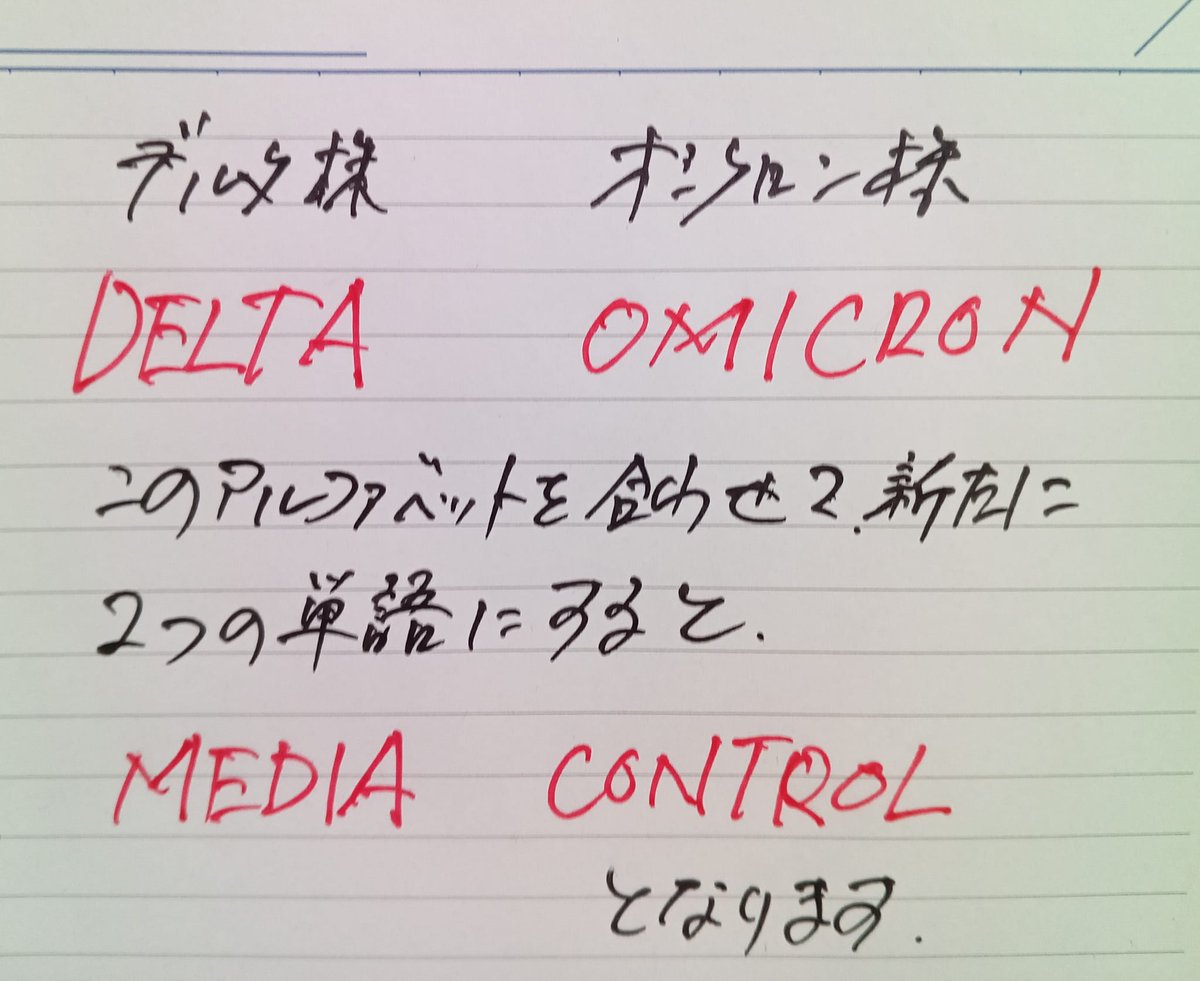 デルタ株 オミクロン株
DELTA OMICRON
このアルファベットを合わせて、新たに
2つの単語にすると、
MEDIA CONTROL
となります.